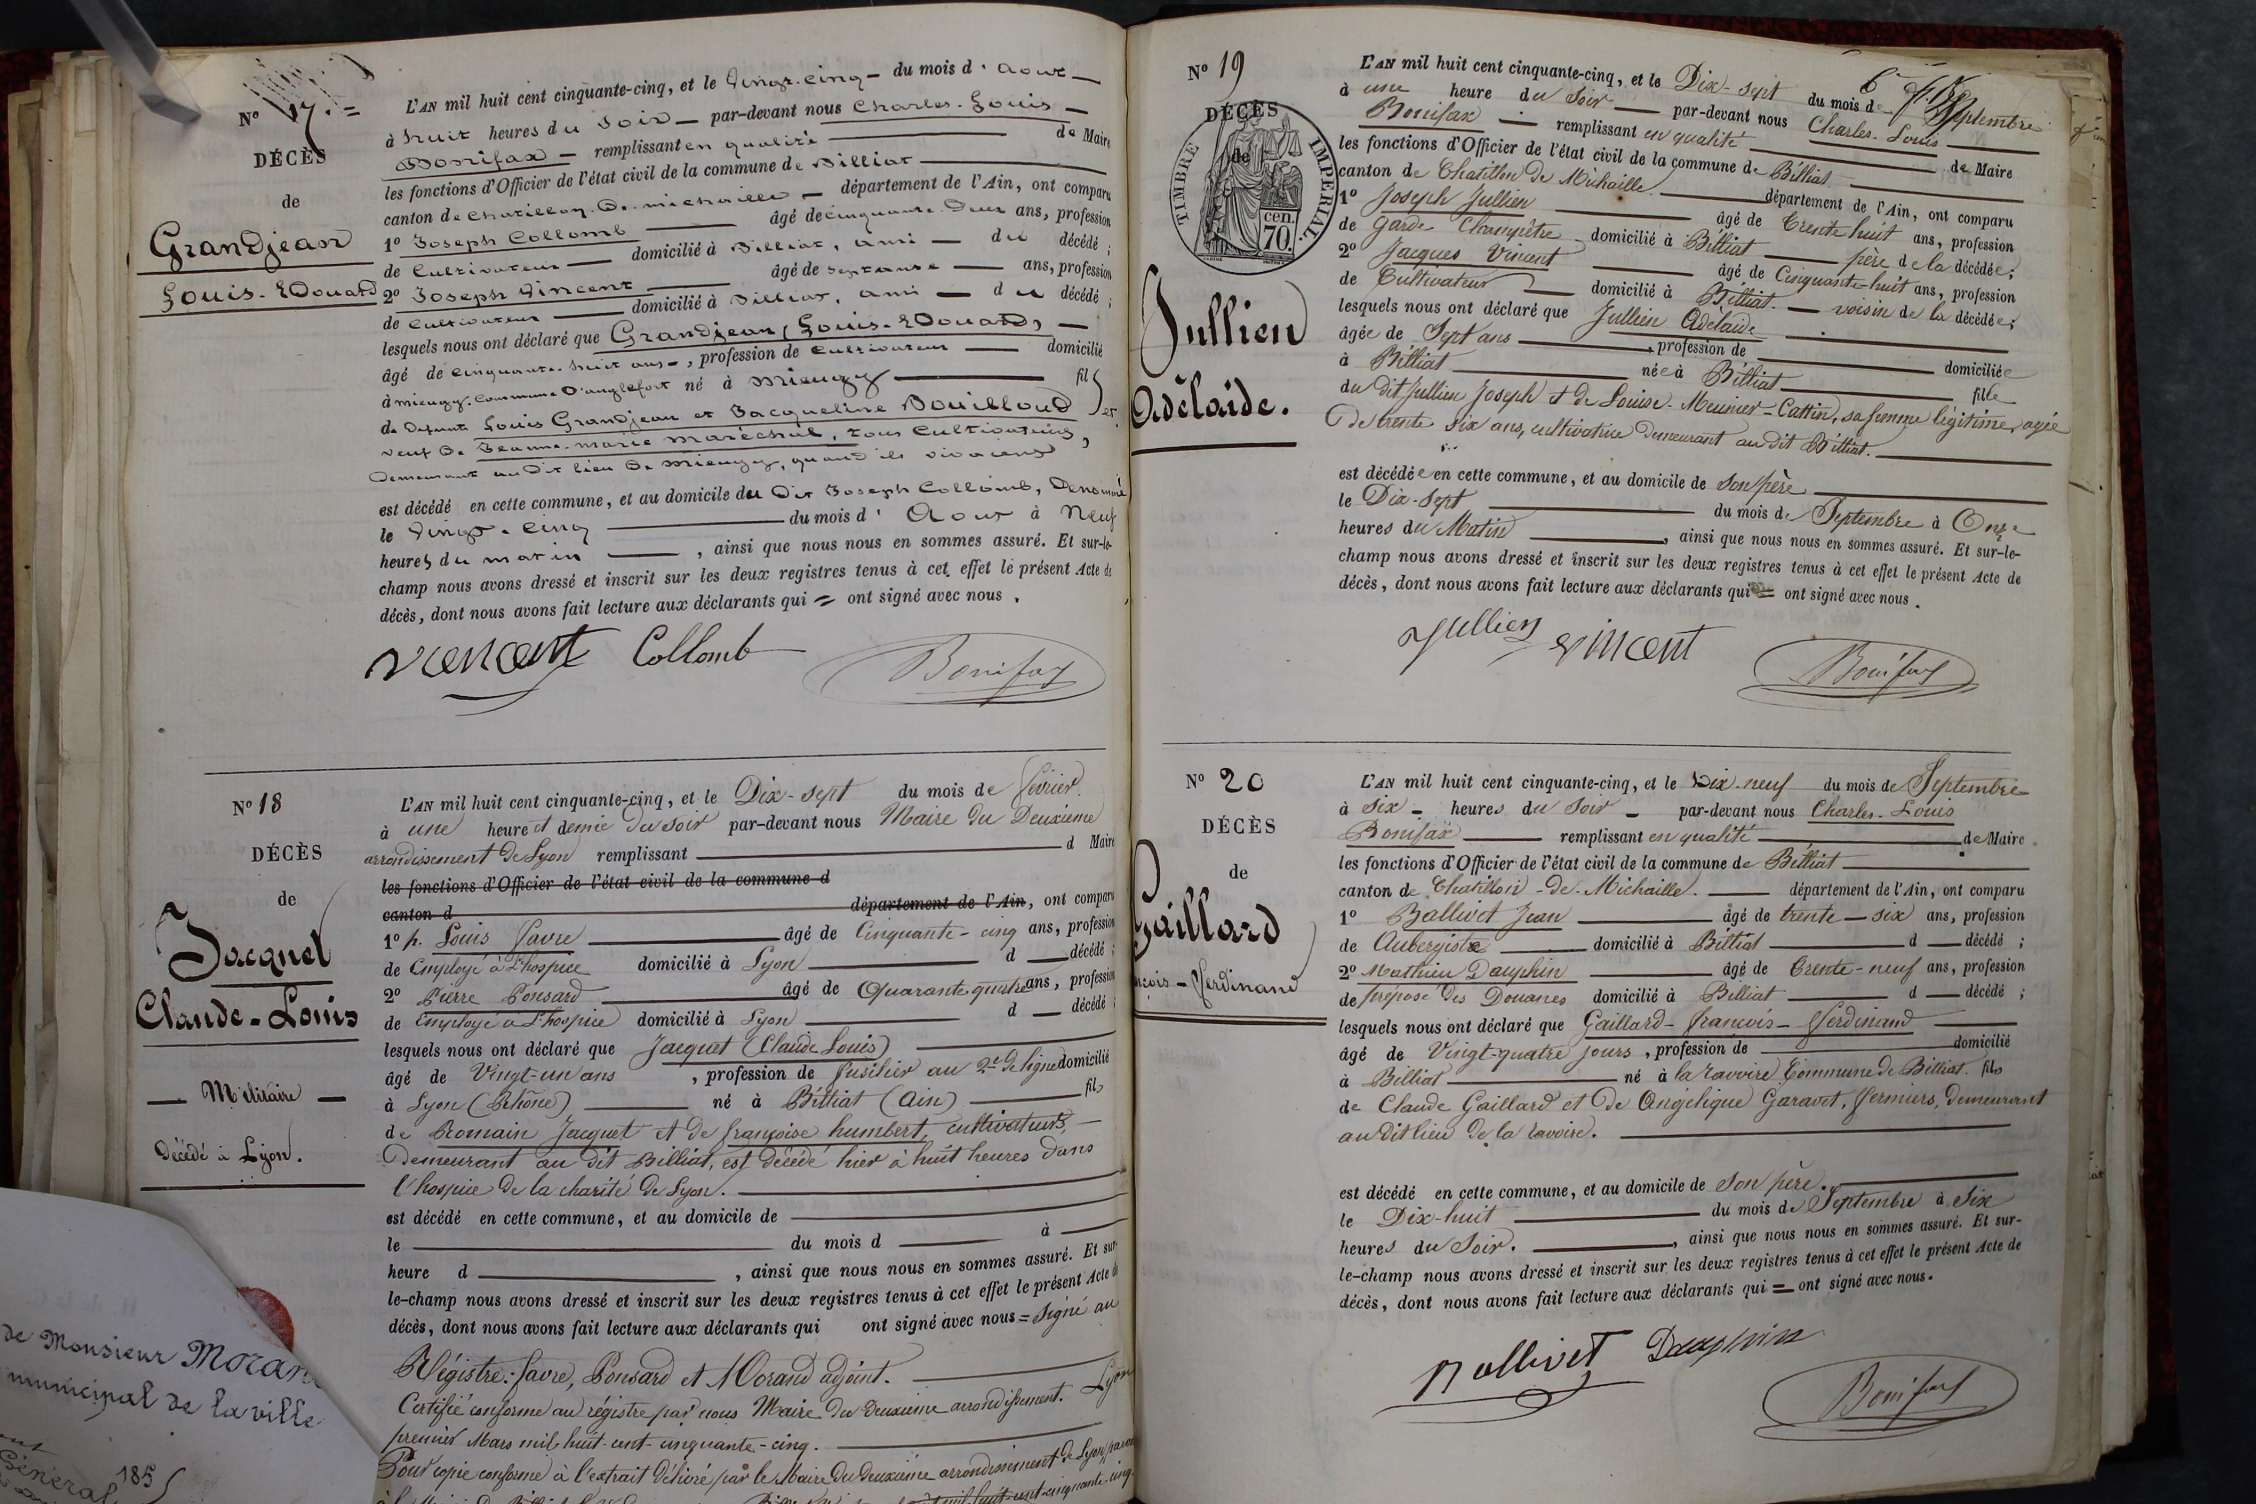 N° 17.
DÉCÈS
de
Grandjean
Louis-Edouard
L'AN mil huit cent cinquante-cinq, et le vingt-cinq du mois d'aout
à huit heures du soir par-devant nous Charles-Louis
Bonifax remplissant en qualité de Maire
les fonctions d'Officier de l'état civil de la commune de Billiat
canton de Chatillon de michaille département de l'Ain, ont comparu
1° Joseph Collomb âgé de cinquante deux ans, profession
de Cultivateur domicilié à Billiat, ami du décédé ;
2° Joseph Vincent âgé de septante ans, profession
de Cultivateur domicilié à Billiat, ami du décédé ;
lesquels nous ont déclaré que Grandjean, Louis-Edouard,
âgé de cinquante-huit ans, profession de cultivateur domicilié
à mieugy, commune d'anglefort né à mieugy fils
de defunts Louis Grandjean et Jacqueline Bouilloud et
veuf de Jeanne-marie maréchal, tous cultivateurs,
demeurant au dit lieu de mieugy, quand ils vivaient
est décédé en cette commune, et au domicile du dit Joseph Collomb, dénommé
le vingt-cinq du mois d'Aout à Neuf
heures du matin, ainsi que nous nous en sommes assuré. Et sur-le-
champ nous avons dressé et inscrit sur les deux registres tenus à cet effet le présent Acte de
décès, dont nous avons fait lecture aux déclarants qui ont signé avec nous.
vencent Collomb Bonifax
N° 18
DÉCÈS
de
Jacquet
Claude-Louis
Militaire
Décédé à Lyon.
L'AN mil huit cent cinquante-cinq, et le Dix-sept du mois de février
à une heure et demie du soir par-devant nous Maire du Deuxième
arrondissement de Lyon remplissant d Maire
les fonctions d'Officier de l'état civil de la commune d
canton d département de l'Ain, ont comparu
1° p. Louis Favre âgé de Cinquante-cinq ans, profession
de Employé à l'hospice domicilié à Lyon d décédé ;
2° Pierre Ponsard âgé de Quarante quatre ans, profession
de Employé à l'hospice domicilié à Lyon d décédé ;
lesquels nous ont déclaré que Jacquet (Claude Louis)
âgé de Vingt-un ans, profession de fusilier au 2e de ligne domicilié
à Lyon (Rhône) né à Billiat (Ain) fils
de Romain Jacquet et de françoise humbert, cultivateurs,
demeurant au dit Billiat, est décédé hier à huit heures dans
l'hospice de la charité de Lyon.
est décédé en cette commune, et au domicile de
le du mois d à
heure d, ainsi que nous nous en sommes assuré. Et sur-
le-champ nous avons dressé et inscrit sur les deux registres tenus à cet effet le présent Acte de
décès, dont nous avons fait lecture aux déclarants qui ont signé avec nous = Signé au
Régistre : favre, Ponsard et Morand adjoint.
Certifié conforme au régistre par nous Maire du deuxième arrondissement. Lyon
premier Mars mil huit-cent-cinquante-cinq.
Pour copie conforme à l'extrait délivré par le Maire du deuxième arrondissement de Lyon
de Monsieur Moran
municipal de la ville
185
N° 19
DÉCÈS
de
TIMBRE IMPERIAL
70 cen.
Jullien
Adélaïde.
L'AN mil huit cent cinquante-cinq, et le Dix-sept du mois de Septembre
à une heure du soir par-devant nous Charles-Louis
Bonifax remplissant en qualité de Maire
les fonctions d'Officier de l'état civil de la commune de Billiat
canton de Chatillon de Michaille département de l'Ain, ont comparu
1° Joseph Jullien âgé de trente huit ans, profession
de garde Champêtre domicilié à Billiat père de la décédée ;
2° Jacques Vincent âgé de Cinquante-huit ans, profession
de Cultivateur domicilié à Billiat voisin de la décédée ;
lesquels nous ont déclaré que Jullien Adélaïde
âgée de Sept ans, profession de domiciliée
à Billiat née à Billiat fille
du dit Jullien Joseph et de Louise-Meunier-Cattin, sa femme légitime, agée
de trente six ans, cultivatrice demeurant au dit Billiat.
est décédée en cette commune, et au domicile de son père
le Dix-Sept du mois de Septembre à Onze
heures du Matin, ainsi que nous nous en sommes assuré. Et sur-le-
champ nous avons dressé et inscrit sur les deux registres tenus à cet effet le présent Acte de
décès, dont nous avons fait lecture aux déclarants qui ont signé avec nous.
Jullien vincent Bonifax
N° 20
DÉCÈS
de
Gaillard
nçois-Ferdinand
L'AN mil huit cent cinquante-cinq, et le Dix-neuf du mois de Septembre
à six heures du soir par-devant nous Charles-Louis
Bonifax remplissant en qualité de Maire
les fonctions d'Officier de l'état civil de la commune de Billiat
canton de Chatillon-de-Michaille. département de l'Ain, ont comparu
1° Ballivet Jean âgé de trente-six ans, profession
de Aubergiste domicilié à Billiat d décédé ;
2° Mathieu Dauphin âgé de trente-neuf ans, profession
de préposé des Douanes domicilié à Billiat d décédé ;
lesquels nous ont déclaré que Gaillard-françois-Ferdinand
âgé de Vingt-quatre jours, profession de domicilié
à Billiat né à la ravoire Commune de Billiat. fils
de Claude Gaillard et de Angélique Garavet, fermiers, demeurant
au dit lieu de la ravoire.
est décédé en cette commune, et au domicile de son père.
le Dix-huit du mois de Septembre à Six
heures du Soir., ainsi que nous nous en sommes assuré. Et sur-
le-champ nous avons dressé et inscrit sur les deux registres tenus à cet effet le présent Acte de
décès, dont nous avons fait lecture aux déclarants qui ont signé avec nous.
Ballivet Dauphin
Bonifax